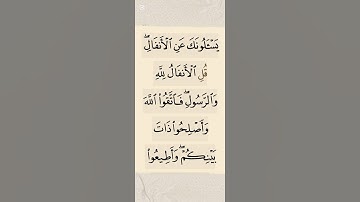 يَسْـَٔلُونَكَ عَنِ ٱلْأَنفَالِۖ
قُلِ ٱلْأَنفَالُ لِلَّهِ
وَٱلرَّسُولِۖ فَٱتَّقُوا۟ ٱللَّهَ
وَأَصْلِحُوا۟ ذَاتَ
بَيْنِكُمْۖ وَأَطِيعُوا۟